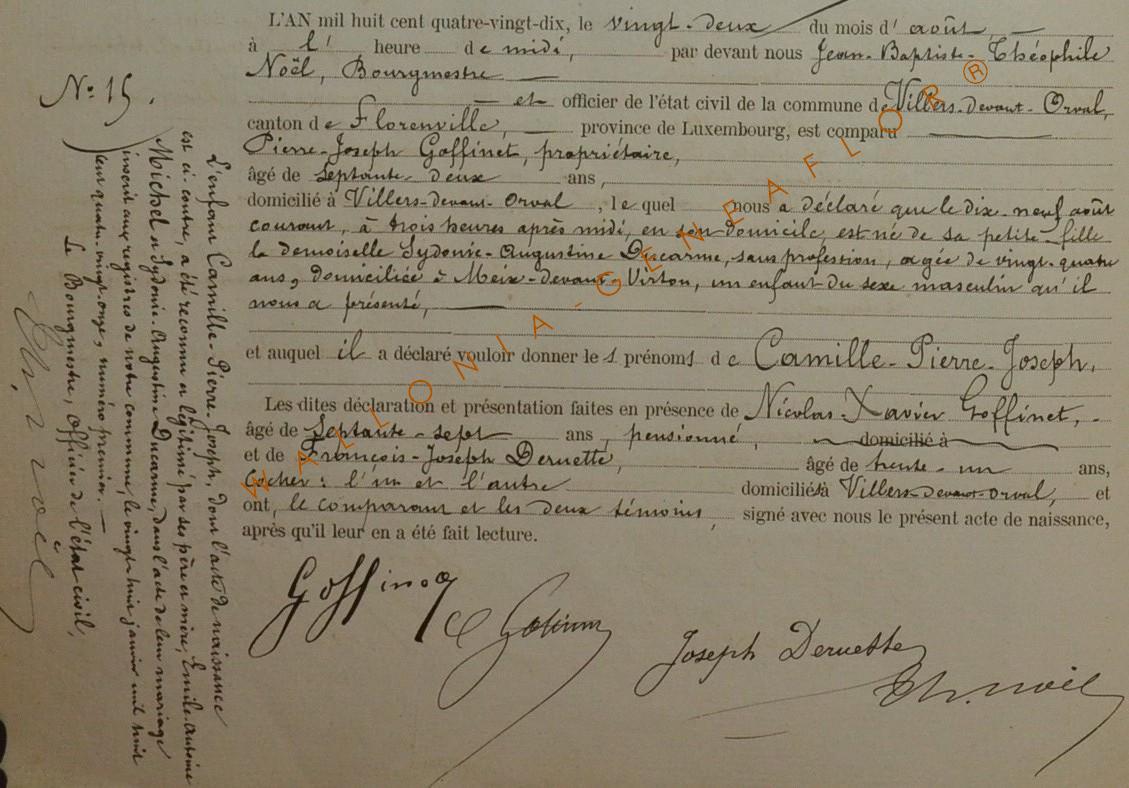 L'AN mil huit cent quatre-vingt-dix, le vingt-deux du mois d'août,
à l' heure de midi, par devant nous Jean-Baptiste-Théophile
Noël, Bourgmestre
et officier de l'état civil de la commune de Villers-devant-Orval,
canton de Florenville, province de Luxembourg, est comparu
Pierre-Joseph Goffinet, propriétaire,
âgé de septante deux ans,
domicilié à Villers-devant-Orval, le quel nous a déclaré que le dix-neuf août
courant, à trois heures après midi, en son domicile, est né de sa petite-fille
la demoiselle Sydonie-Augustine Ducarme, sans profession, agée de vingt-quatre
ans, domiciliée à Meix-devant-Virton, un enfant du sexe masculin qu'il
nous a présenté,
et auquel il a déclaré vouloir donner les prénoms de Camille-Pierre-Joseph.
Les dites déclaration et présentation faites en présence de Nicolas-Xavier Goffinet,
âgé de septante-sept ans, pensionné, domicilié à
et de François-Joseph Deruette, âgé de trente-un ans,
Cocher: l'un et l'autre domiciliés à Villers-devant-Orval, et
ont, le comparant et les deux témoins, signé avec nous le présent acte de naissance,
après qu'il leur en a été fait lecture.
Goffinet
Joseph Deruette
Th. Noël
N° 15.
L'enfant Camille-Pierre-Joseph, dont l'acte de naissance
est ci contre, a été reconnu et légitimé par ses père et mère, Emile-Antoine
Michel et Sydonie-Augustine Ducarme, dans l'acte de leur mariage
inscrit aux registres de notre commune, le vingt huit janvier mil huit
cent quatre-vingt-onze, numéro premier.
Le Bourgmestre, officier de l'état civil,
Th. Noël
WALLONIA-GENEAFLOR®